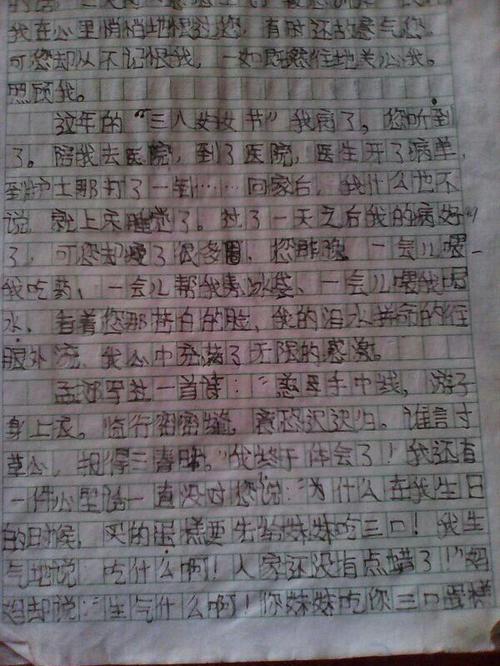 我在心里悄悄地恨过您，有时还故意气您。
可您却从不记恨我，一如既然往地关心我。
照顾我。
这年的“三八妇女节”我病了。您听到
了。陪我去医院，到了医院，医生开了病单，
到护士那打了一到……回家后，我什么也不
说，就上床睡觉了。过了一天之后我的病好
了，可您却瘦了很多圈，您那晚，一会儿喂
我吃药、一会儿帮我敷冰袋、一会儿喂我喝
水，看着您那苍白的脸，我的泪水拼命的往
眼外流，我心中充满了无限的感激。
孟郊写过一首诗：“慈母手中线，游子
身上衣。临行密密缝，意恐迟迟归。谁言寸
草心，报得三春晖。”我终于体会了！我还有
一件心里话一直没对您说：“为什么在我生日
的日时候，买的蛋糕要先给妹妹吃三口！我生
气地说：吃什么啊！人家还没有点蜡了！”妈
妈却说：“生气什么啊！你妹妹吃你三口蛋糕